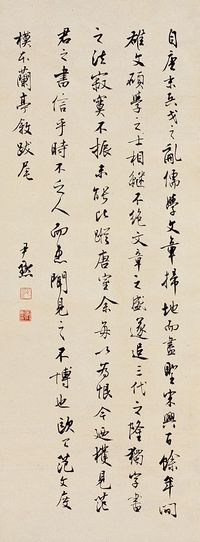 自唐末兵戈之亂儒學文章掃地而盡聖宋興百餘年間
雄文碩學之士相繼不絕文章之盛遂追三代之隆獨字書
之法寂寞不振未能比蹤唐室余每以為恨今迺獲見范
君之書信乎時不乏人而患聞見之不博也歐公范文度
模本蘭亭敘跋尾
尹默